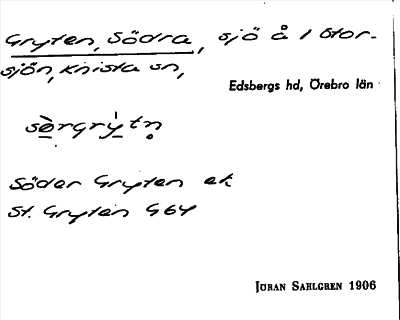 Gryten, Södra, sjö å l Stor-
sjön, Knista sn,
Edsbergs hd, Örebro län
sörgrytn
Söder Gryten ek
St. Gryten G64
JÖRAN SAHLGREN 1906